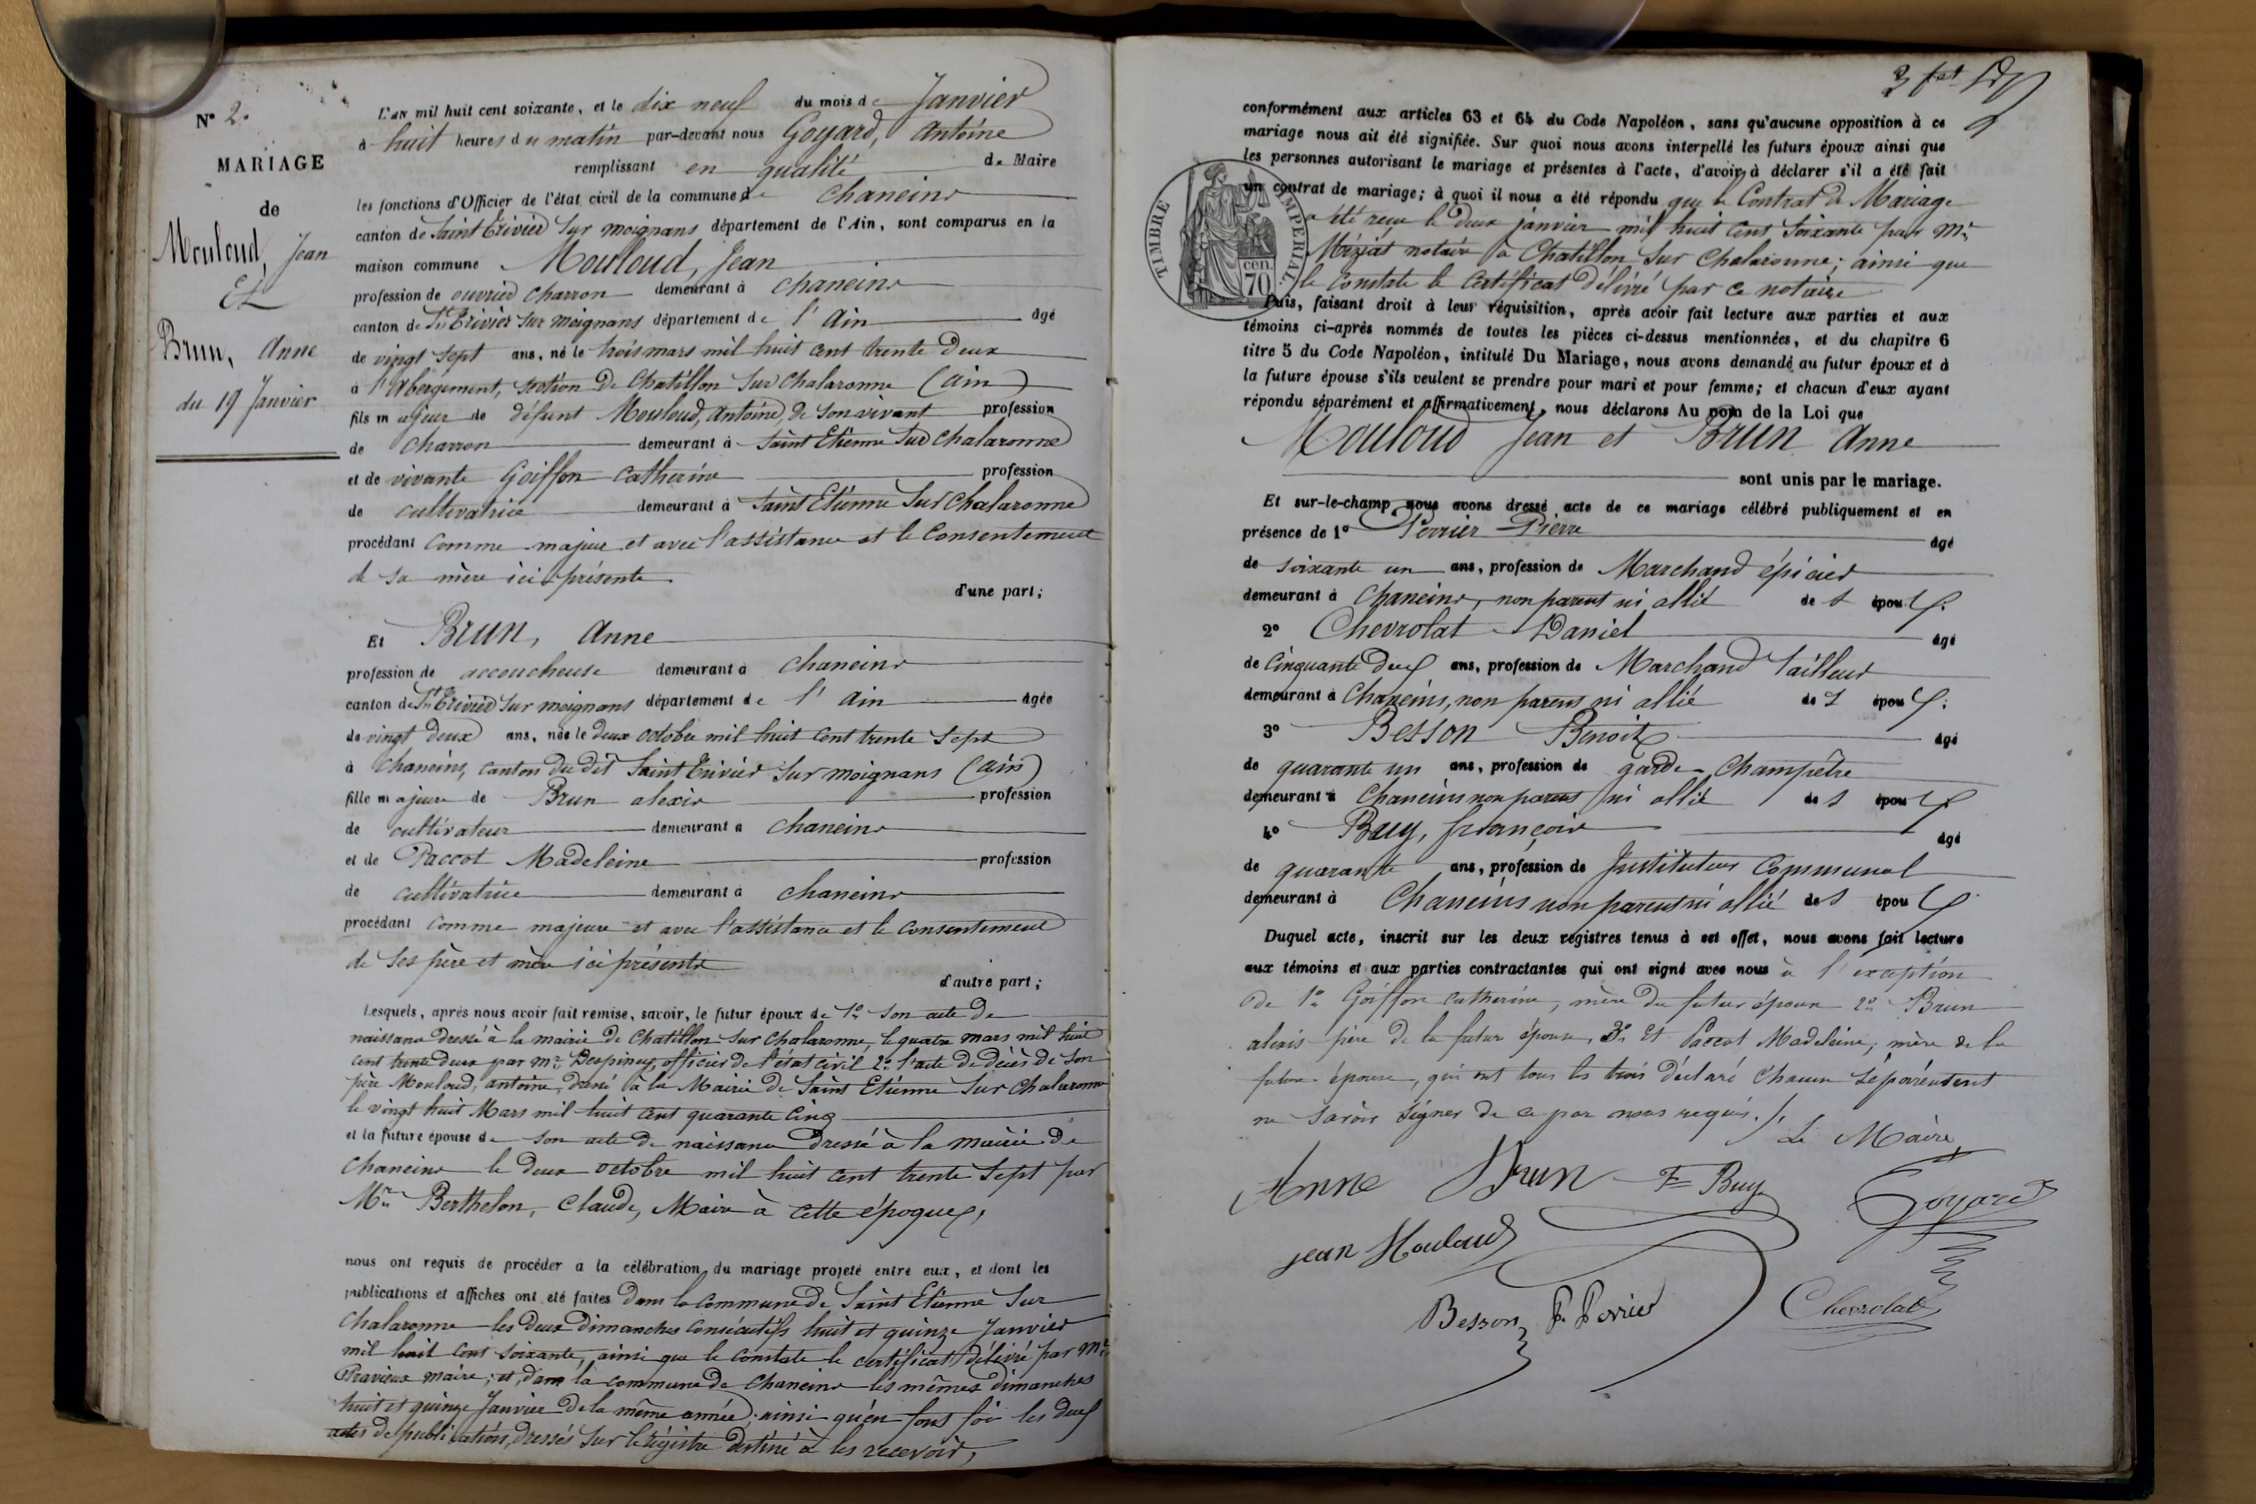 N° 2.
MARIAGE
de
Mouloud, Jean
Et
Brun, Anne
du 19 Janvier
L'an mil huit cent soixante, et le dix neuf du mois de Janvier
à huit heures du matin par-devant nous Goyard, Antoine
remplissant en qualité de Maire
les fonctions d'Officier de l'état civil de la commune de Chaneins
canton de Saint Trivier sur moignans département de l'Ain, sont comparus en la
maison commune Mouloud, Jean
profession de ouvrier charron demeurant à Chaneins
canton de St Trivier sur moignans département de l'Ain âgé
de vingt sept ans, né le trois mars mil huit cent trente deux
à l'Abergement, section de Chatillon sur Chalaronne (Ain)
fils majeur de défunt Mouloud, Antoine, de son vivant profession
de charron demeurant à Saint Etienne sur Chalaronne
et de vivante Goiffon Catherine profession
de cultivatrice demeurant à Saint Etienne sur Chalaronne
procédant comme majeur et avec l'assistance et le consentement
de sa mère ici présente
d'une part;
Et Brun, Anne
profession de accoucheuse demeurant à Chaneins
canton de St Trivier sur moignans département de l'Ain âgée
de vingt deux ans, née le deux octobre mil huit cent trente sept
à Chaneins, canton du dit Saint Trivier sur moignans (Ain)
fille majeure de Brun alexis profession
de cultivateur demeurant à Chaneins
et de Paccot Madeleine profession
de cultivatrice demeurant à Chaneins
procédant comme majeure et avec l'assistance et le consentement
de ses père et mère ici présents
d'autre part;
Lesquels, après nous avoir fait remise, savoir, le futur époux de 1° son acte de
naissance dressé à la mairie de Chatillon sur Chalaronne, le quatre mars mil huit
cent trente deux par Mr Despiney, officier de l'état civil 2° l'acte de décès de son
père Mouloud, antoine, dressé à la Mairie de Saint Etienne sur Chalaronne
le vingt huit Mars mil huit cent quarante cinq
et la future épouse de son acte de naissance dressé à la mairie de
Chaneins le deux octobre mil huit cent trente sept par
Mr Berthelon, Claude, Maire à cette époque,
nous ont requis de procéder à la célébration du mariage projeté entre eux, et dont les
publications et affiches ont été faites dans la commune de Saint Etienne sur
Chalaronne les deux dimanches consécutifs huit et quinze Janvier
mil huit cent soixante, ainsi que le constate le certificat délivré par Mr
maire; et dans la commune de Chaneins les mêmes dimanches
huit et quinze Janvier de la même année, ainsi qu'en font foi les deux
actes de publication, dressés sur le registre destiné à les recevoir,
conformément aux articles 63 et 64 du Code Napoléon, sans qu'aucune opposition à ce
mariage nous ait été signifiée. Sur quoi nous avons interpellé les futurs époux ainsi que
les personnes autorisant le mariage et présentes à l'acte, d'avoir à déclarer s'il a été fait
un contrat de mariage; à quoi il nous a été répondu que le Contrat de Mariage
a été reçu le deux janvier mil huit cent soixante par Me
Méziat notaire à Chatillon sur Chalaronne; ainsi que
le constate le certificat délivré par ce notaire
TIMBRE IMPERIAL
70 cen.
Puis, faisant droit à leur réquisition, après avoir fait lecture aux parties et aux
témoins ci-après nommés de toutes les pièces ci-dessus mentionnées, et du chapitre 6
titre 5 du Code Napoléon, intitulé Du Mariage, nous avons demandé au futur époux et à
la future épouse s'ils veulent se prendre pour mari et pour femme; et chacun d'eux ayant
répondu séparément et affirmativement, nous déclarons Au nom de la Loi que
Mouloud Jean et Brun Anne
sont unis par le mariage.
Et sur-le-champ nous avons dressé acte de ce mariage célébré publiquement et en
présence de 1° Perrier Pierre âgé
de soixante un ans, profession de Marchand épicier
demeurant à Chaneins, non parent ni allié des époux.
2° Chevrolat Daniel âgé
de cinquante deux ans, profession de Marchand tailleur
demeurant à Chaneins, non parent ni allié des époux.
3° Besson Benoit âgé
de quarante un ans, profession de garde-champêtre
demeurant à Chaneins non parent ni allié des époux
4° Buy, françois âgé
de quarante ans, profession de Instituteur Communal
demeurant à Chaneins non parent ni allié des époux.
Duquel acte, inscrit sur les deux registres tenus à cet effet, nous avons fait lecture
aux témoins et aux parties contractantes qui ont signé avec nous à l'exception
de 1° Goiffon catherine, mère du futur époux 2° Brun
alexis père de la futur épouse, 3° Et Paccot Madeleine, mère de la
future épouse, qui ont tous les trois déclaré chacun séparément
ne savoir signer de ce par nous requis.
Le Maire
Anne Brun F Buy Goyard
jean Mouloud
Besson P. Perrier Chevrolat